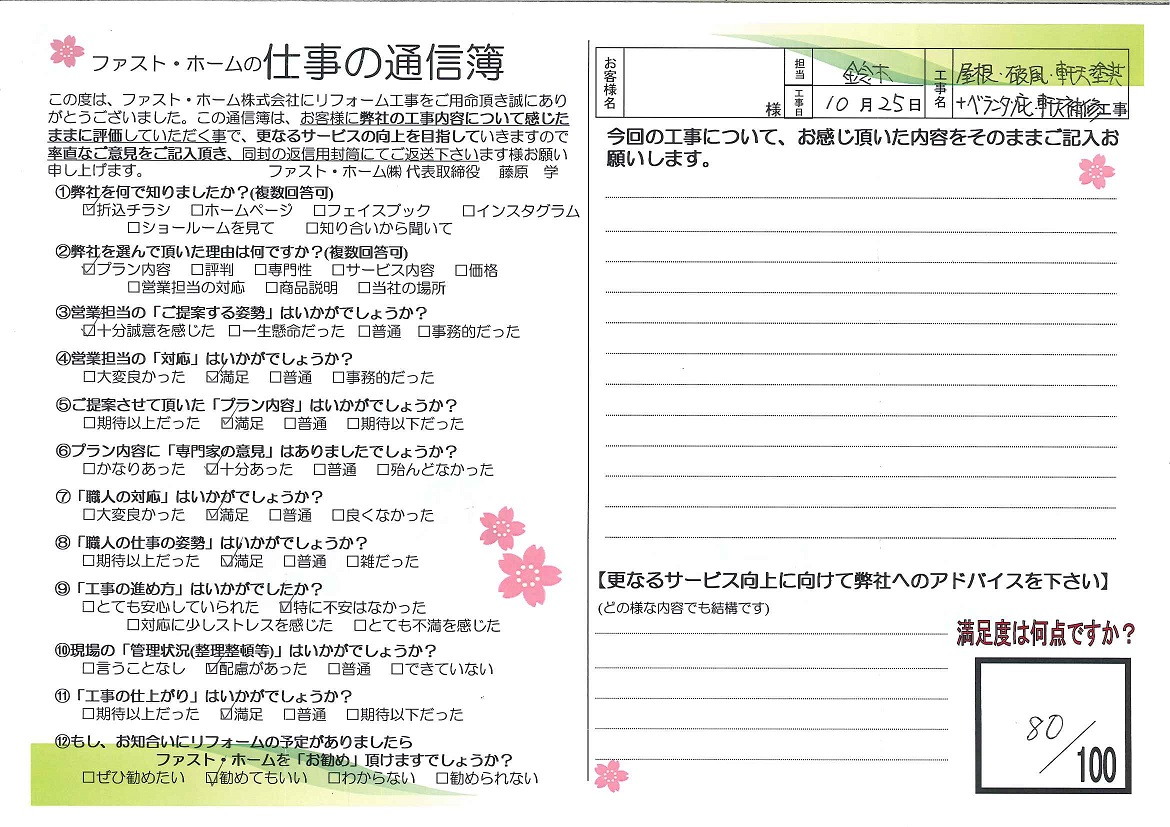 ファスト・ホームの仕事の通信簿
この度は、ファスト・ホーム株式会社にリフォーム工事をご用命頂き誠にあり
がとうございました。この通信簿は、お客様に弊社の工事内容について感じた
ままに評価していただく事で、更なるサービスの向上を目指していきますので
率直なご意見をご記入頂き、同封の返信用封筒にてご返送下さいます様お願い
申し上げます。 ファスト・ホーム㈱ 代表取締役 藤原 学
①弊社を何で知りましたか？(複数回答可)
☑折込チラシ □ホームページ □フェイスブック □インスタグラム
□ショールームを見て □知り合いから聞いて
②弊社を選んで頂いた理由は何ですか？(複数回答可)
☑プラン内容 □評判 □専門性 □サービス内容 □価格
□営業担当の対応 □商品説明 □当社の場所
③営業担当の「ご提案する姿勢」はいかがでしょうか？
☑十分誠意を感じた □一生懸命だった □普通 □事務的だった
④営業担当の「対応」はいかがでしょうか？
□大変良かった ☑満足 □普通 □事務的だった
⑤ご提案させて頂いた「プラン内容」はいかがでしょうか？
□期待以上だった ☑満足 □普通 □期待以下だった
⑥プラン内容に「専門家の意見」はありましたでしょうか？
□かなりあった ☑十分あった □普通 □殆んどなかった
⑦「職人の対応」はいかがでしょうか？
□大変良かった ☑満足 □普通 □良くなかった
⑧「職人の仕事の姿勢」はいかがでしょうか？
□期待以上だった ☑満足 □普通 □雑だった
⑨「工事の進め方」はいかがでしたか？
□とても安心していられた ☑特に不安はなかった
□対応に少しストレスを感じた □とても不満を感じた
⑩現場の「管理状況(整理整頓等)」はいかがでしょうか？
□言うことなし ☑配慮があった □普通 □できていない
⑪「工事の仕上がり」はいかがでしょうか？
□期待以上だった ☑満足 □普通 □期待以下だった
⑫もし、お知合いにリフォームの予定がありましたら
ファスト・ホームを「お勧め」頂けますでしょうか？
□ぜひ勧めたい ☑勧めてもいい □わからない □勧められない
お客様名 様
担当 鈴木
工事日 10月25日
工事名 屋根・破風・軒天塗装
+ベランダ床、軒天補修工事
今回の工事について、お感じ頂いた内容をそのままご記入お
願いします。
【更なるサービス向上に向けて弊社へのアドバイスを下さい】
(どの様な内容でも結構です)
満足度は何点ですか？
80/100